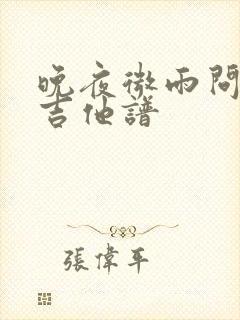 晚夜微雨問
吉他譜
張偉平